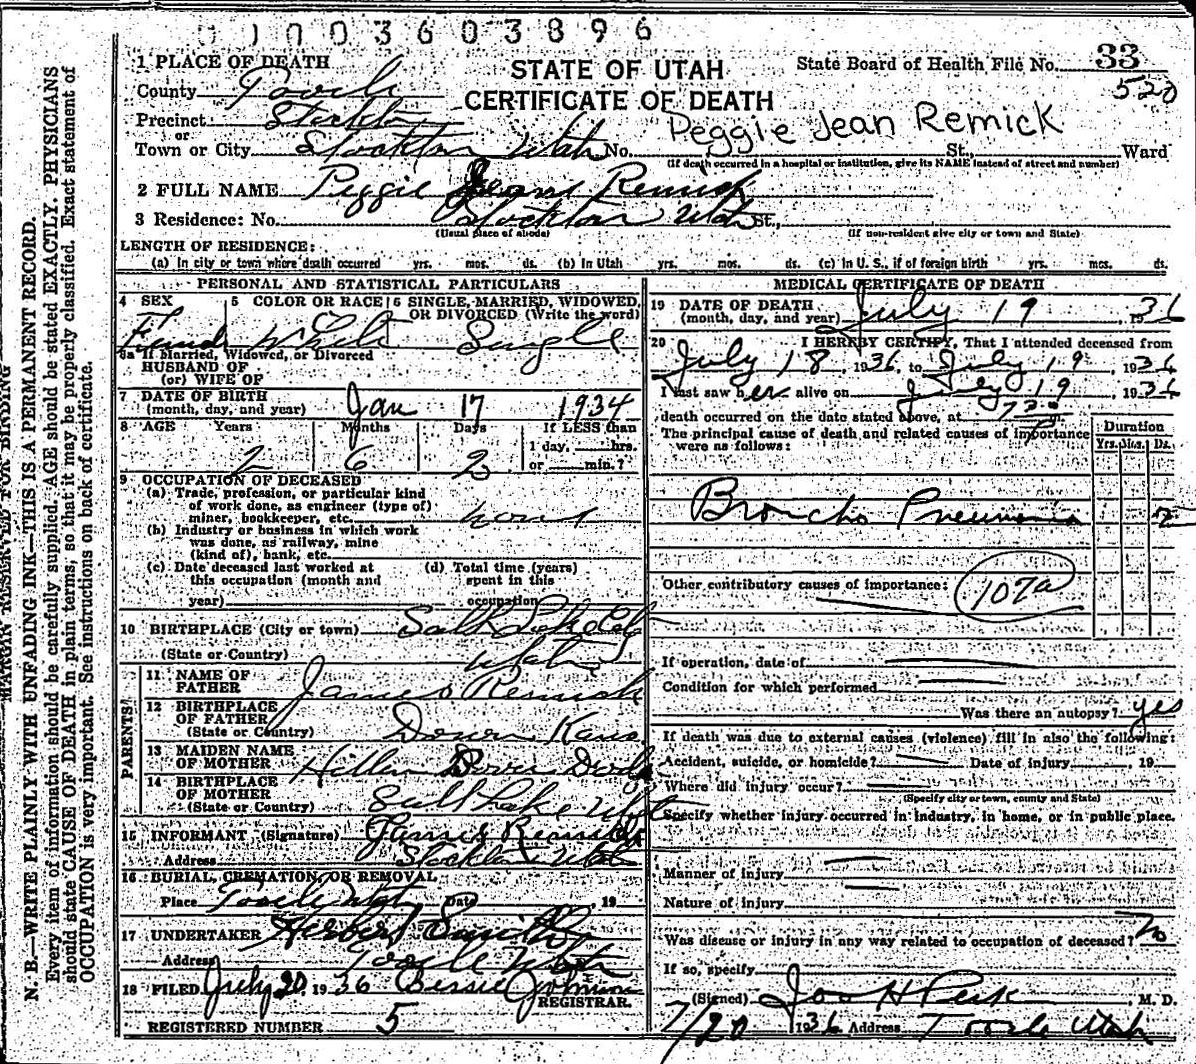 0100 3 6 0 3 8 9 6
1 PLACE OF DEATH
STATE OF UTAH
State Board of Health File No. 33
520
County Tooele
CERTIFICATE OF DEATH
Precinct Stockton
Peggie Jean Remick
or
Town or City Stockton Utah No. St., Ward
(If death occurred in a hospital or institution, give its NAME instead of street and number)
2 FULL NAME Peggie Jean Remick
3 Residence: No. Stockton Utah St.,
(Usual place of abode) (If non-resident give city or town and State)
LENGTH OF RESIDENCE:
(a) In city or town where death occurred yrs. mos. ds. (b) In Utah yrs. mos. ds. (c) In U. S., if of foreign birth yrs. mos. ds.
PERSONAL AND STATISTICAL PARTICULARS
4 SEX 5 COLOR OR RACE 6 SINGLE, MARRIED, WIDOWED,
OR DIVORCED (Write the word)
White Single
6a If Married, Widowed, or Divorced
HUSBAND OF
(or) WIFE OF
7 DATE OF BIRTH
(month, day, and year) Jan 17 1934
8 AGE Years Months Days If LESS than
1 day, hrs.
2 6 2 or min.?
9 OCCUPATION OF DECEASED
(a) Trade, profession, or particular kind
of work done, as engineer (type of)
miner, bookkeeper, etc. none
(b) Industry or business in which work
was done, as railway, mine
(kind of), bank, etc.
(c) Date deceased last worked at (d) Total time (years)
this occupation (month and spent in this
year) occupation
10 BIRTHPLACE (City or town) Salt Lake City
(State or Country) Utah
PARENTS
11 NAME OF
FATHER James Remick
12 BIRTHPLACE
OF FATHER
(State or Country) Kans
13 MAIDEN NAME
OF MOTHER
14 BIRTHPLACE
OF MOTHER
(State or Country) Salt Lake Utah
15 INFORMANT (Signature) James Remick
Address Stockton Utah
16 BURIAL, CREMATION, OR REMOVAL
Place Tooele Utah Date , 19
17 UNDERTAKER Herbert Smith
Address Tooele Utah
18 FILED July 20, 1936 Bessie Johnson
REGISTRAR.
REGISTERED NUMBER 5
MEDICAL CERTIFICATE OF DEATH
19 DATE OF DEATH
(month, day, and year) July 19, 1936
20 I HEREBY CERTIFY, That I attended deceased from
July 18, 1936, to July 19, 1936
I last saw her alive on July 19, 1936
death occurred on the date stated above, at
The principal cause of death and related causes of importance
were as follows:
Duration
Yrs. Mos. Ds.
Broncho Pneumonia
Other contributory causes of importance: 107a
If operation, date of
Condition for which performed
Was there an autopsy? yes
If death was due to external causes (violence) fill in also the following:
Accident, suicide, or homicide? Date of injury , 19
Where did injury occur?
(Specify city or town, county and State)
Specify whether injury occurred in industry, in home, or in public place.
Manner of injury
Nature of injury
Was disease or injury in any way related to occupation of deceased? No
If so, specify
(Signed) Jos H Peck, M. D.
7/20 1936 Address Tooele Utah
MARGIN RESERVED FOR BINDING
N. B.—WRITE PLAINLY WITH UNFADING INK—THIS IS A PERMANENT RECORD.
Every item of information should be carefully supplied. AGE should be stated EXACTLY. PHYSICIANS
should state CAUSE OF DEATH in plain terms, so that it may be properly classified. Exact statement of
OCCUPATION is very important. See instructions on back of certificate.